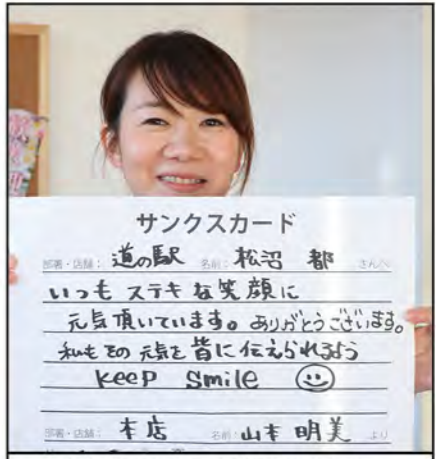 サンクスカード
部署・店舗： 道の駅 名前： 松沼 都 さんへ
いつも ステキな笑顔に
元気頂いています。ありがとうございます。
私もその元気を皆に伝えられるよう
Keep Smile
部署・店舗： 本店 名前： 山本 明美 より